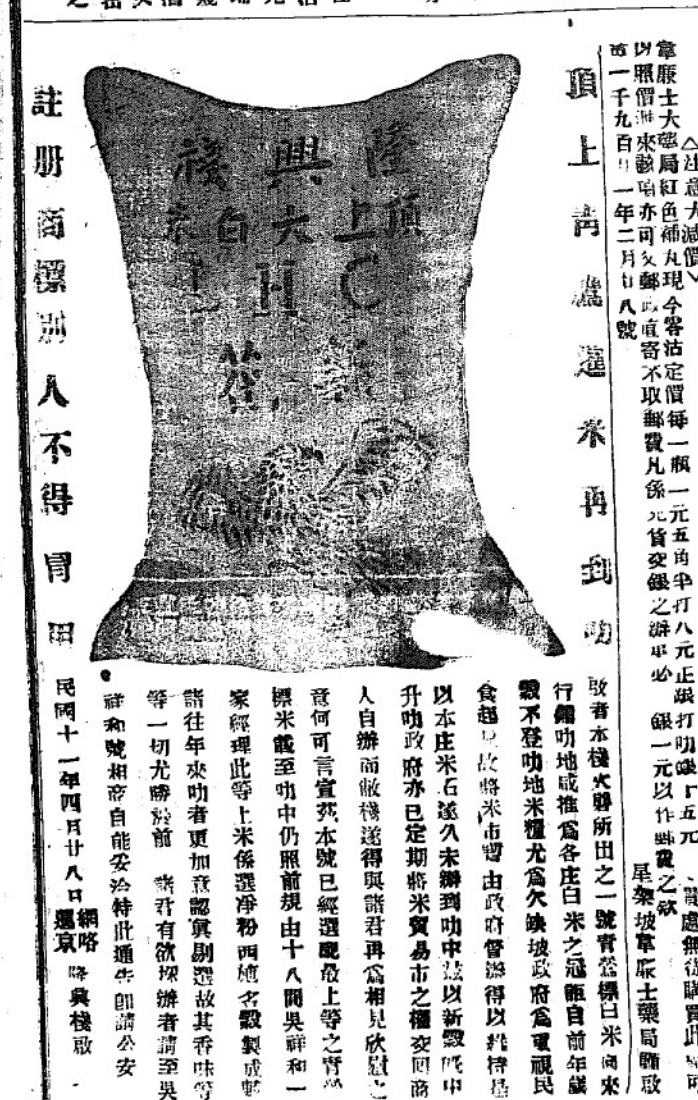 △注意大減價▽
韋廉士大藥局紅色補丸現今零沽定價每一瓶一元五角半打八元正 打叻銀 五元
處無從購買此
以照價 來 亦可交郵政直寄不取郵費凡係 貨交銀之辦 必 銀一元以作 費之欵
一千九百廿一年二月廿八號
星架坡韋廉士藥局謹啟
頂上青鷹選米再到叻
隆興棧
頂上大白米
C H L
青鷹
註册商標別人不得冒用
啟者本棧火礱所出之一號青鷹標白米向來
行銷叻地咸推為各庄白米之冠詎自前年歲
穀不登叻地米糧尤為欠缺坡政府為重視民
食起見故將米市暫由政府督辦得以維持是
以本庄米石遂久未辦到叻中茲以新穀 中
升叻政府亦已定期將米貿易市之權交回商
人自辦而敝棧遂得與諸君再為相見欣慰之
意何可言宣茲本號已經選配最上等之青鷹
標米載至叻中仍照前規由十八間吳祥和一
家經理此等上米係選凈粉西 名穀製成較
諸往年來叻者更加意認真剔選故其香味等
等一切尤勝於前 諸君有欲採辦者請至吳
祥和號相商自能妥洽特此通告即請公安
民國十一年四月廿八日
暹京 隆興棧啟